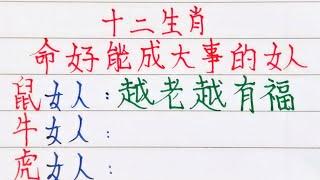 十二生肖
命好能成大事的女人
鼠女人：越老越有福
牛女人：
虎女人：